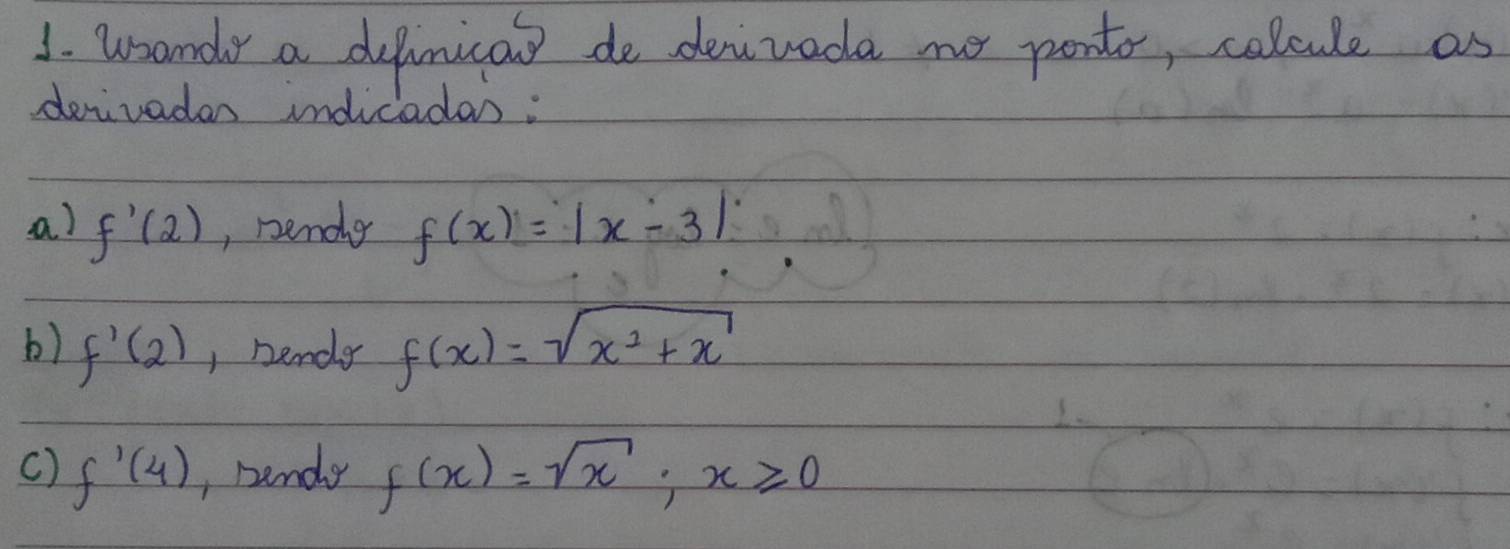 1- Usando a definição de derivada no ponto, calcule as
derivadas indicadas:
a) f'(2), sendo f(x) = |x - 3|.
b) f'(2), sendo f(x) = √(x² + x)
c) f'(4), sendo f(x) = √x ; x ≥ 0